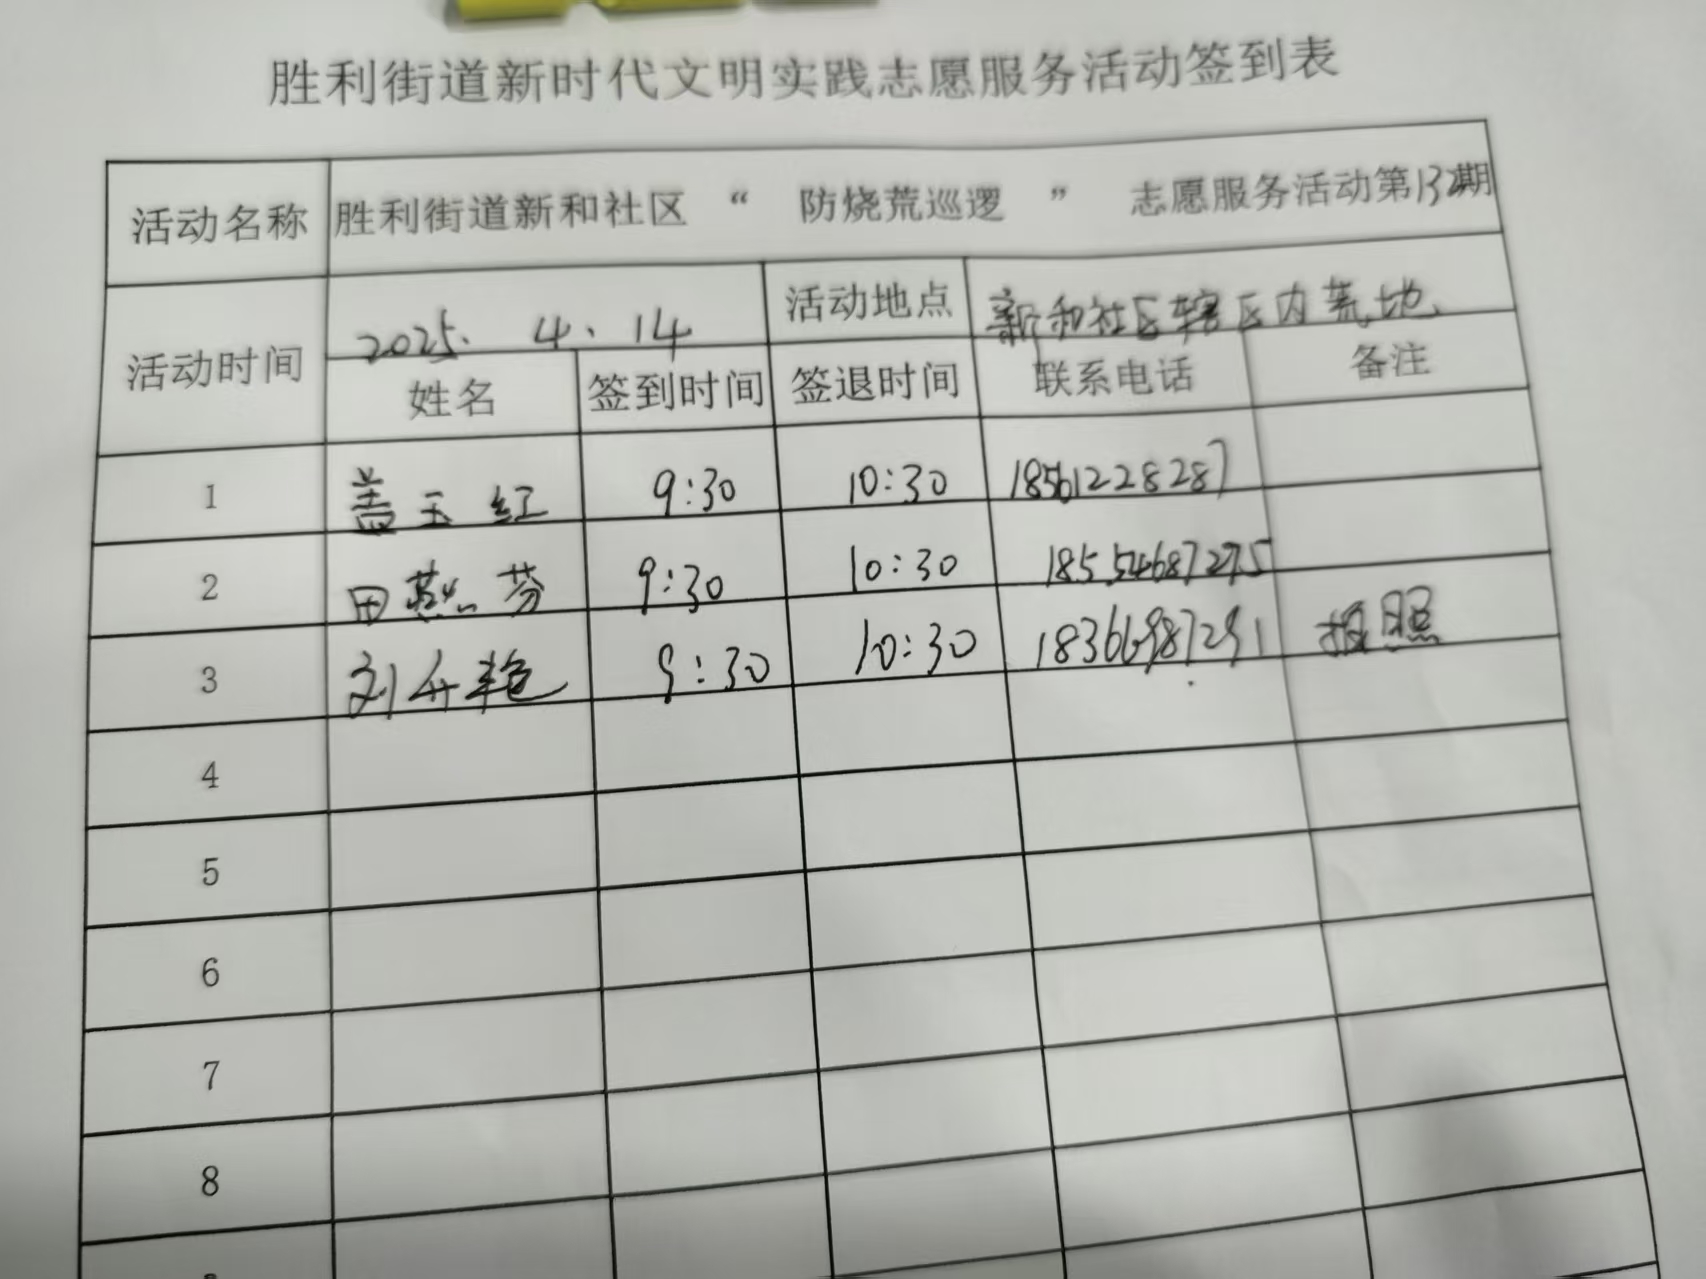 胜利街道新时代文明实践志愿服务活动签到表
活动名称 胜利街道新和社区 “ 防烧荒巡逻 ” 志愿服务活动第132期
活动时间 2025. 4. 14 活动地点 新和社区辖区内荒地
姓名 签到时间 签退时间 联系电话 备注
1 盖玉红 9:30 10:30 18561228287
2 田燕芬 9:30 10:30 18554687275
3 刘丹艳 9:30 10:30 18366987291 报照
4
5
6
7
8